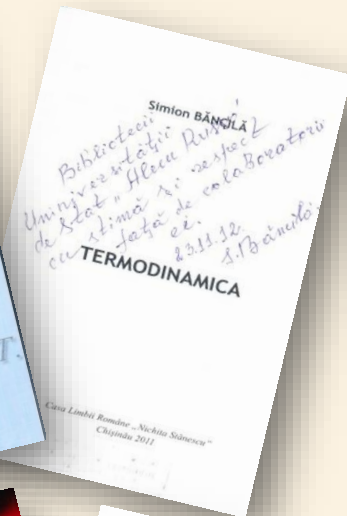 Simion BĂNCILĂ
Bibliotecii
Universității
de Stat „Alecu Russo”
cu stimă și respect
față de colaboratorii
ei.
23.11.12.
S. Băncilă
TERMODINAMICA
Casa Limbii Române „Nichita Stănescu”
Chișinău 2011
T.